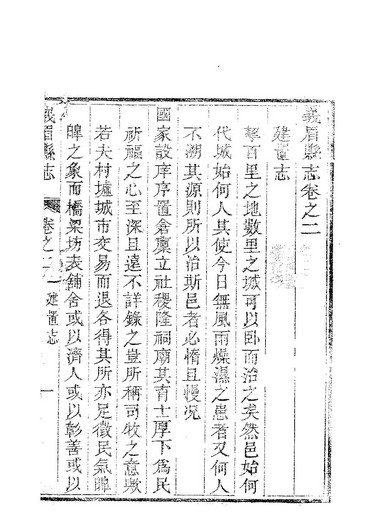 峩眉縣志卷之二
建置志
拏百里之地數里之城可以卧而治之矣然邑始何
代城始何人其使今日無風雨燥濕之患者又何人
不溯其源則所以治斯邑者必惰且慢況
國家設庠序置倉廩立社稷隆祠廟其育士厚下爲民
祈福之心至深且遠不詳錄之豈所稱司牧之意歟
若夫村墟城市交易而退各得其所亦足徵民氣皥
皥之象而橋梁坊表舖舍或以濟人或以彰善或以
峩眉縣志
卷之二
建置志
一